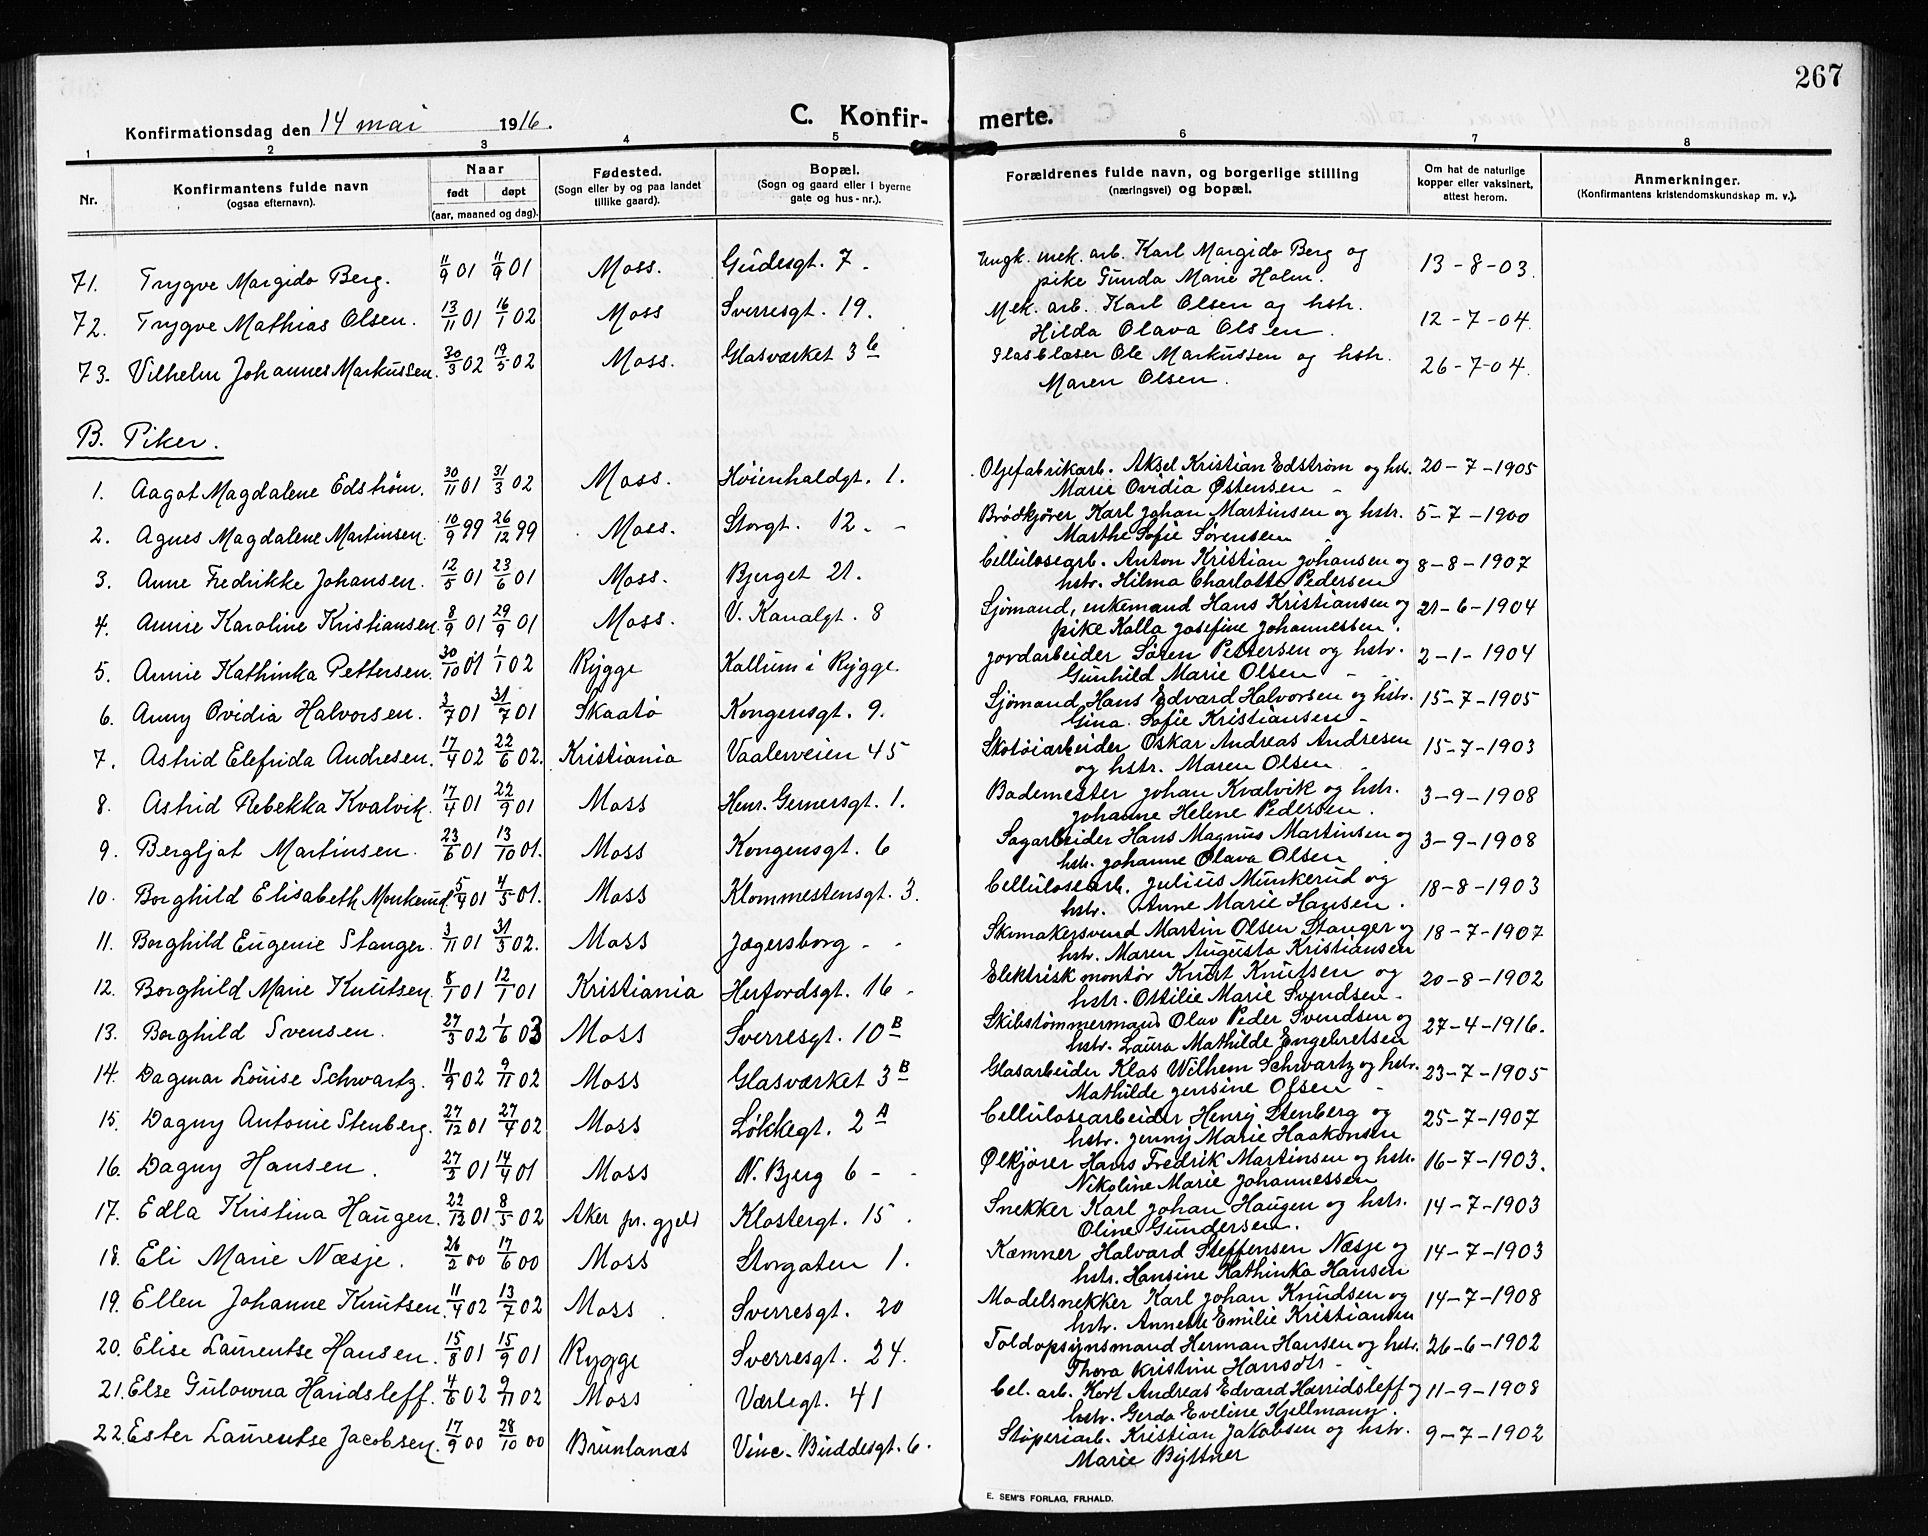 267
Konfirmationsdag den 14 mai 1916.
C. Konfir- merte.
1 2 3 4 5 6 7 8
Nr.
Konfirmantens fulde navn
(ogsaa efternavn).
Naar
født døpt
(aar, maaned og dag).
Fødested.
(Sogn eller by og paa landet
tillike gaard).
Bopæl.
(Sogn og gaard eller i byerne
gate og hus-nr.).
Forældrenes fulde navn, og borgerlige stilling
(næringsvei) og bopæl.
Om hat de naturlige
kopper eller vaksinert,
attest herom.
Anmerkninger.
(Konfirmantens kristendomskundskap m. v.).
71. Trygve Margido Berg. 11/9 01 11/9 01 Moss. Gudesgt. 7. Ungk. mek. arb. Karl Margido Berg og 13-8-03.
pike Gunda Marie Holm.
72. Trygve Mathias Olsen. 13/11 01 16/1 02 Moss Sverresgt. 19. Mek. arb. Karl Olsen og hstr. 12-7-04.
Hilda Olava Olsen.
73. Vilhelm Johannes Markussen. 30/3 02 19/5 02 Moss. Glasværket 3 b Glasblæser Ole Markussen og hstr. 26-7-04.
Maren Olsen.
B. Piker.
1. Aagot Magdalene Edstrøm. 30/11 01 31/3 02 Moss. Høienhaldgt. 1. Oljefabrikarb. Aksel Kristian Edstrøm og hst. 20-7-1905
Marie Ovidia Østensen -
2. Agnes Magdalene Martinsen. 10/9 99 26/12 99 Moss. Storgt. 12. - Brødkjører Karl Johan Martinsen og hstr. 5-7-1900
Marthe Sofie Sørensen
3. Anne Fredrikke Johansen. 12/5 01 23/6 01 Moss. Bjerget 21. Cellulosearb. Anton Kristian Johansen og 8-8-1907
hstr. Hilma Charlotte Pedersen
4. Annie Karoline Kristiansen. 8/9 01 29/9 01 Moss. V. Kanalgt. 8 Sjømand, enkemand Hans Kristiansen og 21-6-1904
pike Kalla Josefine Johannessen.
5. Annie Kathinka Pettersen. 30/10 01 1/1 02 Rygge Kallum i Rygge. Jordarbeider Søren Pettersen og hstr. 2-1-1904
Gunhild Marie Olsen -
6. Anny Ovidia Halvorsen. 3/7 01 31/7 01 Skaatø Kongensgt. 9. Sjømand Hans Edvard Halvorsen og hstr. 15-7-1905
Gina Sofie Kristiansen -
7. Astrid Elefrida Andresen. 17/4 02 22/6 02. Kristiania Vaalerveien 45 Skotøiarbeider Oskar Andreas Andresen 15-7-1903
og hstr. Maren Olsen
8. Astrid Rebekka Kvalvik. 17/4 01 22/9 01 Moss Henr. Gernersgt. 1. Bademester Johan Kvalvik og hstr. 3-9-1908
Johanne Helene Pedersen.
9. Bergljot Martinsen. 23/6 01 13/10 01. Moss Kongensgt. 6 Sagarbeider Hans Magnus Martinsen og 3-9-1908
hstr. Johanne Olava Olsen
10. Borghild Elisabeth Munkerud 5/4 01 4/5 01. Moss Klommestensgt. 3. Cellulosearb. Julius Munkerud og 18-8-1903
hstr. Anne Marie Hansen.
11. Borghild Eugenie Stanger. 3/11 01 31/3 02. Moss Jægersborg - - Skomakersvend Martin Olsen Stanger og 18-7-1907
hstr. Maren Augusta Kristiansen
12. Borghild Marie Knutsen. 8/1 01 12/1 01 Kristiania Herfordsgt. 16 - Elektrisk montør Knut Knutsen og 20-8-1902
hstr. Ottilie Marie Svendsen -
13. Borghild Svensen. 27/3 02 1/6 03 Moss Sverresgt. 10 B Skibstømmermand Olav Peder Svendsen og 27-4-1916.
hstr. Laura Mathilde Engebretsen
14. Dagmar Louise Schwartz. 11/9 02 9/11 02 Moss Glasværket 3 B Glasarbeider Klas Wilhem Schwartz og hstr. 23-7-1905
Mathilde Jensine Olsen -
15. Dagny Antonie Stenberg. 27/12 01 27/4 02 Moss Løkkegt. 2 A Cellulosearbeider Henry Stenberg og 25-7-1907
hstr. Jenny Marie Haakonsen
16. Dagny Hansen. 27/3 01 14/4 01 Moss N. Bjerg 6 - - Ølkjører Hans Fredrik Martinsen og hstr. 16-7-1903.
Nikoline Marie Johannessen
17. Edla Kristina Haugen. 22/12 01 8/5 02 Aker pr. gjeld Klostergt. 15. Snekker Karl Johan Haugen og hstr. 14-7-1903
Oline Gundersen.
18. Eli Marie Næsje. 26/2 00 17/6 00 Moss Storgaten 1. Kæmner Halvard Steffensen Næsje og 14-7-1903
hstr. Hansine Kathinka Hansen
19. Ellen Johanne Knutsen. 11/4 02 13/7 02 Moss. Sverresgt. 20 Modelsnekker Karl Johan Knudsen og 14-7-1908
hstr. Annette Emilie Kristiansen
20. Elise Laurentse Hansen. 15/8 01 15/9 01 Rygge Sverresgt. 24. Toldopsynsmand Herman Hansen og hstr. 26-6-1902
Thora Kristine Hansdtr -
21. Else Gulowna Haridsleff. 4/6 02 9/11 02 Moss Værlegt. 41 Cel. arb. Kort Andreas Edvard Harridsleff og 11-9-1908
hstr. Gerda Eveline Kjellmann.
22. Ester Laurentse Jacobsen. 17/9 00 28/10 00 Brunlanæs Vinc-Buddesgt. 6. Støperiarb. Kristian Jakobsen og hstr. 9-7-1902
Marie Byttner
E. SEM'S FORLAG, FR.HALD.